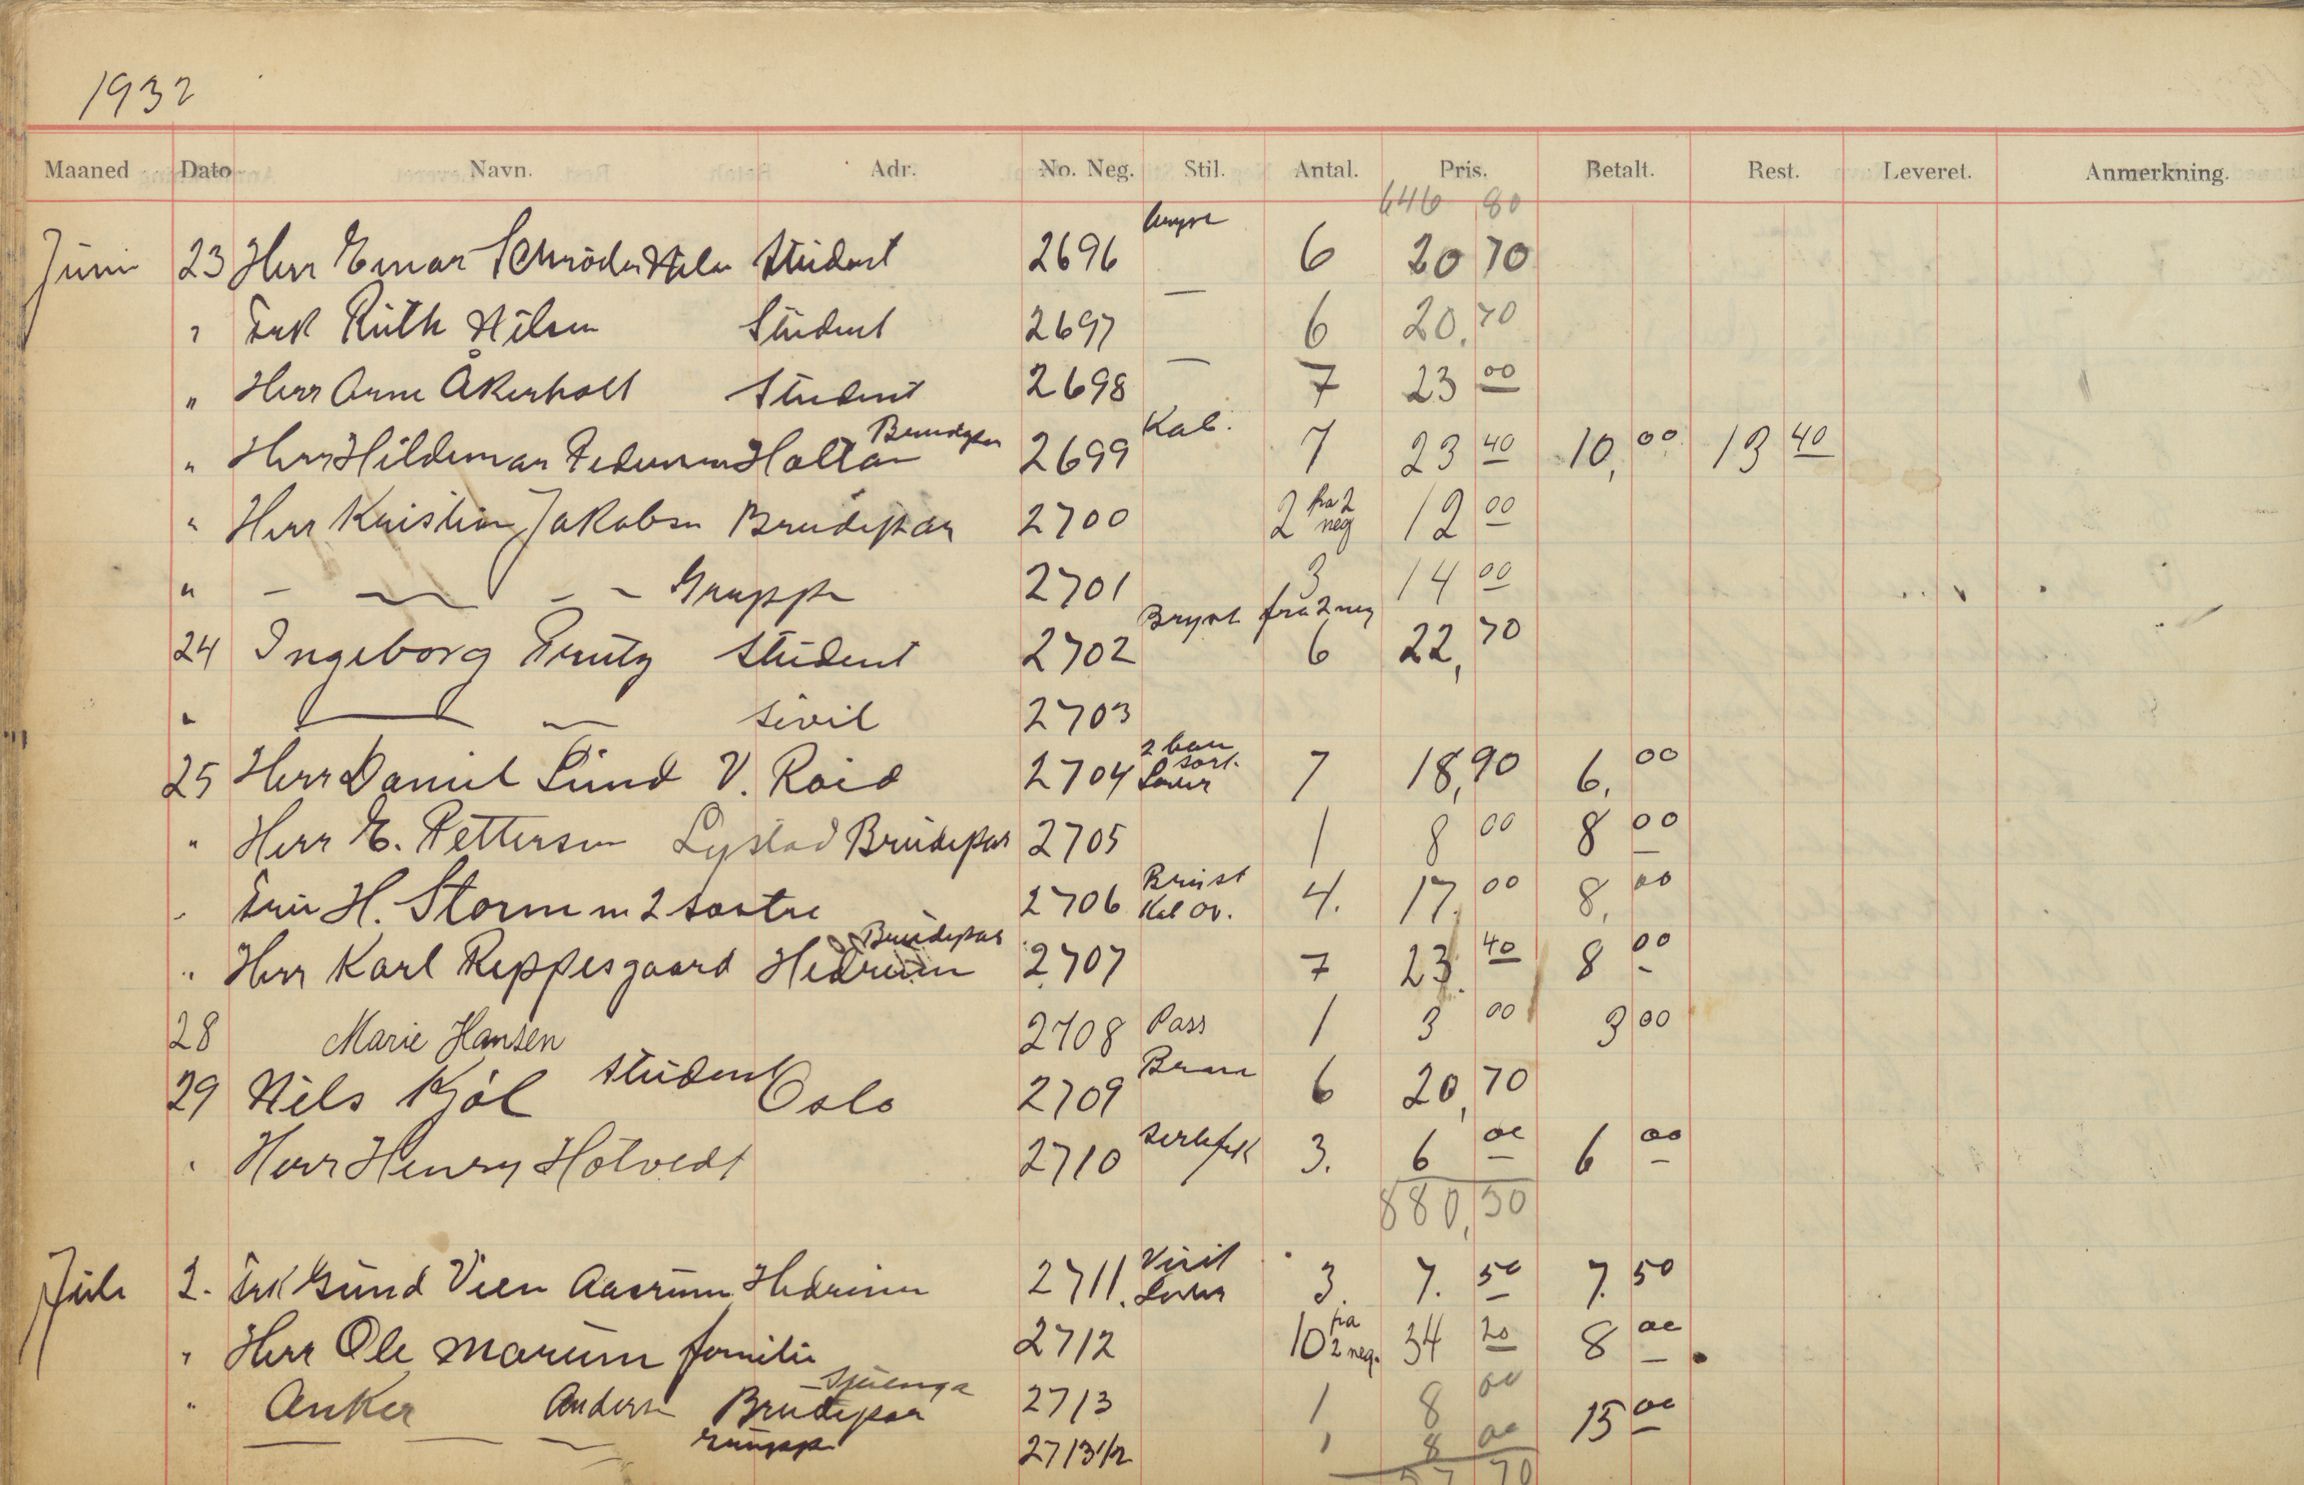 1932
Maaned Dato Navn. Adr. No. Neg. Stil. Antal. Pris. Betalt. Rest. Leveret. Anmerkning.
646 80
Juni 23 Herr Einar Schrøder Student 2696 6 20 70
" Frk Ruth Nilsen Student 2697 — 6 20,70
" Herr Arne Åkerholt Student 2698 — 7 23 00
" Herr Hildemar Pedersen Holtan Brudepar 2699 Kab. 7 23 40 10,00 13 40
" Herr Kristian Jakobsen Brudepar 2700 2 fra 2 neg 12 00
" — — — — Gruppe 2701 3 fra 2 neg 14 00
24 Ingeborg Student 2702 Bryst 6 22,70
" — — sivil 2703
25 Herr Daniel Lund V. Roid 2704 2 7 18,90 6,00
" Herr E. Pettersen Lystad Brudepar 2705 1 8 00 8 00
" Fru H. Storm m 2 søstre 2706 Bryst Kab ov. 4. 17.00 8,00
" Herr Karl Reppesgaard Hedrum Brudepar 2707 7 23.40 8 00
28 Marie Hansen 2708 Pass 1 3 00 3 00
29 Nils Kjøl student Oslo 2709 6 20,70
" Herr Henry Hotvedt 2710 sertifik 3. 6 00 6 00
880,30
Juli 2. Frk Gund Vien Aasrum Hedrum 2711. Visit 3. 7.50 7.50
" Herr Ole Marum familie 2712 10 fra 2 neg. 34 20 8 00
" Anker Anders Brudepar 2713 1 8 00 15 00
— — — 2713 1/2 1 8 00
70